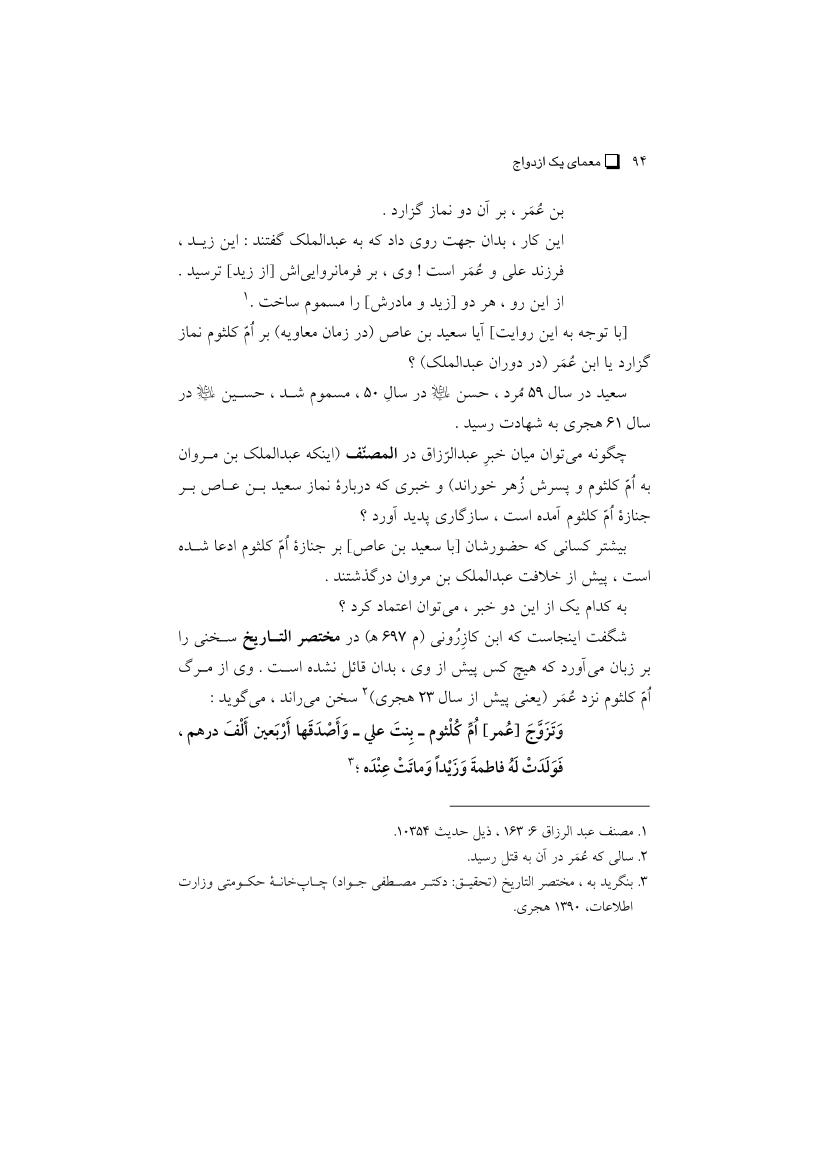 ۹۴ ❏ معمای یک ازدواج
بن عُمَر ، بر آن دو نماز گزارد .
این کار ، بدان جهت روی داد که به عبدالملک گفتند : این زیــد ،
فرزند علی و عُمَر است ! وی ، بر فرمانروایی‌اش [از زید] ترسید .
از این رو ، هر دو [زید و مادرش] را مسموم ساخت .۱
[با توجه به این روایت] آیا سعید بن عاص (در زمان معاویه) بر اُمّ کلثوم نماز
گزارد یا ابن عُمَر (در دوران عبدالملک) ؟
سعید در سال ۵۹ مُرد ، حسن ﷷ در سالِ ۵۰ ، مسموم شــد ، حســین ﷷ در
سال ۶۱ هجری به شهادت رسید .
چگونه می‌توان میان خبرِ عبدالرّزاق در المصنّف (اینکه عبدالملک بن مــروان
به اُمّ کلثوم و پسرش زُهر خوراند) و خبری که دربارهٔ نماز سعید بــن عــاص بــر
جنازهٔ اُمّ کلثوم آمده است ، سازگاری پدید آورد ؟
بیشتر کسانی که حضورشان [با سعید بن عاص] بر جنازهٔ اُمّ کلثوم ادعا شــده
است ، پیش از خلافت عبدالملک بن مروان درگذشتند .
به کدام یک از این دو خبر ، می‌توان اعتماد کرد ؟
شگفت اینجاست که ابن کازِرُونی (م ۶۹۷ ه‍) در مختصر التــاریخ ســخنی را
بر زبان می‌آورد که هیچ کس پیش از وی ، بدان قائل نشده اســت . وی از مــرگ
اُمّ کلثوم نزد عُمَر (یعنی پیش از سال ۲۳ هجری)۲ سخن می‌راند ، می‌گوید :
وَتَزَوَّجَ [عُمر] اُمَّ كُلْثوم ـ بِنتَ علي ـ وَأَصْدَقَها أَرْبَعين أَلْفَ درهم ،
فَوَلَدَتْ لَهُ فاطمةَ وَزَيْداً وَماتَتْ عِنْدَه ؛۳
۱. مصنف عبد الرزاق ۶: ۱۶۳ ، ذیل حدیث ۱۰۳۵۴.
۲. سالی که عُمَر در آن به قتل رسید.
۳. بنگرید به ، مختصر التاریخ (تحقیــق: دکتــر مصــطفی جــواد) چــاپ‌خانــهٔ حکــومتی وزارت
اطلاعات، ۱۳۹۰ هجری.